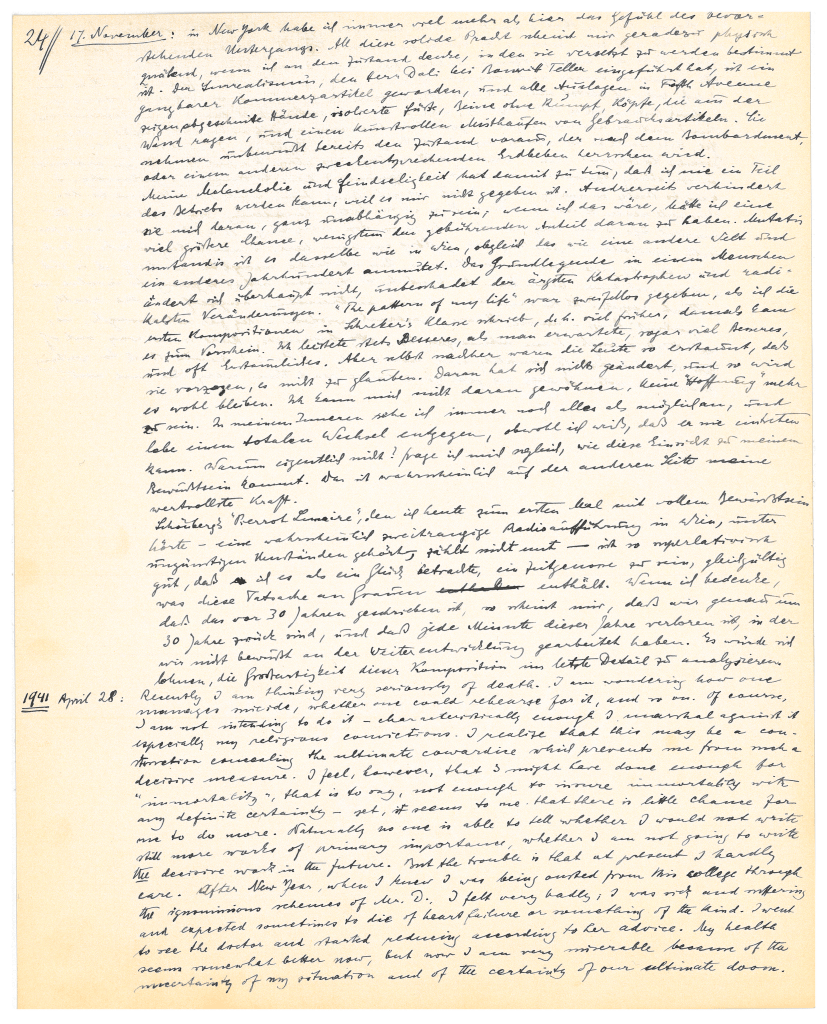 24// 17. November: in New York habe ich immer viel mehr als hier das Gefühl des bevor-
stehenden Untergangs. All diese solide Pracht scheint mir geradezu physisch
quälend, wenn ich an den Zustand denke, in den sie versetzt zu werden bestimmt
ist. Der Surrealismus, den Herr Dali bei Bonwit Teller eingeführt hat, ist ein
gangbarer Kommerzartikel geworden, und alle Auslagen in Fifth Avenue
zeigen abgeschnitte Hände, isolierte Füße, Beine ohne Rumpf, Köpfe, die aus der
Wand ragen, und einen kunstvollen Misthaufen von Gebrauchsartikeln. Sie
nehmen unbewußt bereits den Zustand voraus, der nach dem Bombardement,
oder einem anderen zweckentsprechenden Erdbeben herrschen wird.
Meine Melancholie und Feindseligkeit hat damit zu tun, daß ich nie ein Teil
des Betriebs werden kann, weil es mir nicht gegeben ist. Andrerseits verhindert
sie mich daran, ganz unabhängig zu sein; wenn ich das wäre, hätte ich eine
viel größere Chance, wenigstens den gebührenden Anteil daran zu haben. Mutatis
mutandis ist es dasselbe wie in Wien, obgleich das wie eine andere Welt und
ein anderes Jahrhundert anmutet. Das Grundlegende in einem Menschen
ändert sich überhaupt nicht, unbeschadet der ärgsten Katastrophen und radi-
kalsten Veränderungen. "The pattern of my life" war zweifellos gegeben, als ich die
ersten Kompositionen in Schreker's Klasse schrieb, d.h. viel früher, damals kam
es zum Vorschein. Ich leistete stets Besseres, als man erwartete, sogar viel Besseres,
und oft Erstaunliches. Aber selbst nachher waren die Leute so erstaunt, daß
sie vorzogen, es nicht zu glauben. Daran hat sich nichts geändert, und so wird
es wohl bleiben. Ich kann mich nicht daran gewöhnen, keine "Hoffnung" mehr
zu sein. In meinem Inneren sehe ich immer noch alles als möglich an, und
lebe einem totalen Wechsel entgegen, obwohl ich weiß, daß er nie eintreten
kann. Warum eigentlich nicht? frage ich mich sogleich, wie diese Einsicht zu meinem
Bewußtsein kommt. Das ist wahrscheinlich auf der anderen Seite meine
wertvollste Kraft.
Schönberg's "Pierrot Lunaire", den ich heute zum ersten Mal mit vollem Bewußtsein
hörte – eine wahrscheinlich zweitrangige Radioaufführung in Wien, unter
ungünstigen Umständen gehört, zählt nicht mit – ist so superlativisch
gut, daß ich es als ein Glück betrachte, ein Zeitgenosse zu sein, gleichgültig
was diese Tatsache an Grauen enthält. Wenn ich bedenke,
daß das vor 30 Jahren geschrieben ist, so scheint mir, daß wir genau um
30 Jahre zurück sind, und daß jede Minute dieser Jahre verloren ist, in der
wir nicht bewußt an der Weiterentwicklung gearbeitet haben. Es würde sich
lohnen, die Großartigkeit dieser Komposition ins letzte Detail zu analysieren.
1941 April 28: Recently I am thinking very seriously of death. I am wondering how one
manages suicide, whether one could rehearse for it, and so on. Of course,
I am not intending to do it – characteristically enough I marshal against it
especially my religious convictions. I realize that this may be a con-
struction concealing the ultimate cowardice which prevents me from such a
decisive measure. I feel, however, that I might have done enough for
"immortality", that is to say, not enough to insure immortality with
any definite certainty – yet, it seems to me that there is little chance for
me to do more. Naturally no one is able to tell whether I would not write
still more works of primary importance, whether I am not going to write
the decisive work in the future. But the trouble is that at present I hardly
care. After New Year, when I knew I was being ousted from this college through
the ignominious schemes of Mr. D., I felt very badly; I was sick and suffering
and expected sometimes to die of heart failure or something of the kind. I went
to see the doctor and started reducing according to her advice. My health
seems somewhat better now, but now I am very miserable because of the
uncertainty of my situation and of the certainty of our ultimate doom.